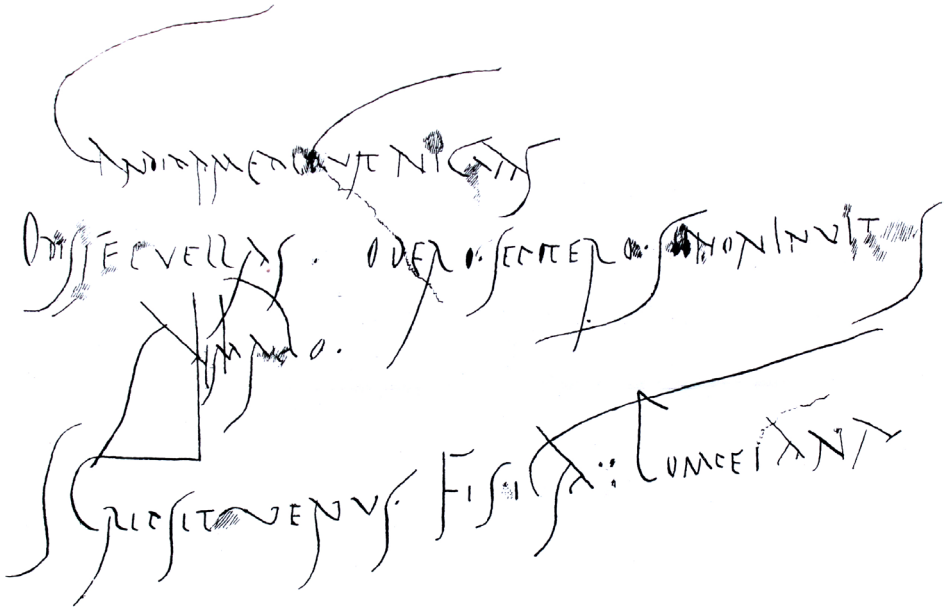 CANDIDA ME DOCVIT NIGRAS
ODISSE PVELLAS · ODERO · SE POTERO · SE NON INVITVS
AMABO ·
SCRIPSIT VENVS · FISICA POMPEIANA